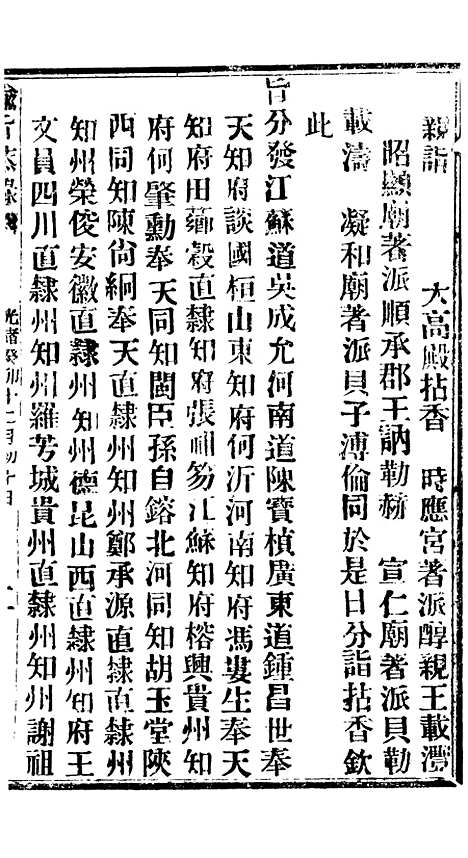 親詣　　　大高殿拈香　時應宮著派醇親王載灃
昭顯廟著派順承郡王訥勒赫　宣仁廟著派貝勒
載濤　凝和廟著派貝子溥倫同於是日分詣拈香欽
此
旨分發江蘇道吳成允河南道陳寶楨廣東道鍾昌世奉
天知府談國桓山東知府何沂河南知府馮婁生奉天
知府田蘊穀直隸知府張祖笏江蘇知府榕興貴州知
府何肇勳奉天同知閻臣孫自鎔北河同知胡玉堂陝
西同知陳尙綗奉天直隸州知州鄭承源直隸直隸州
知州榮俊安徽直隸州知州德昆山西直隸州知府王
文員四川直隸州知州羅芳城貴州直隸州知州謝祖
諭旨恭錄　光緒癸卯十二月初十日